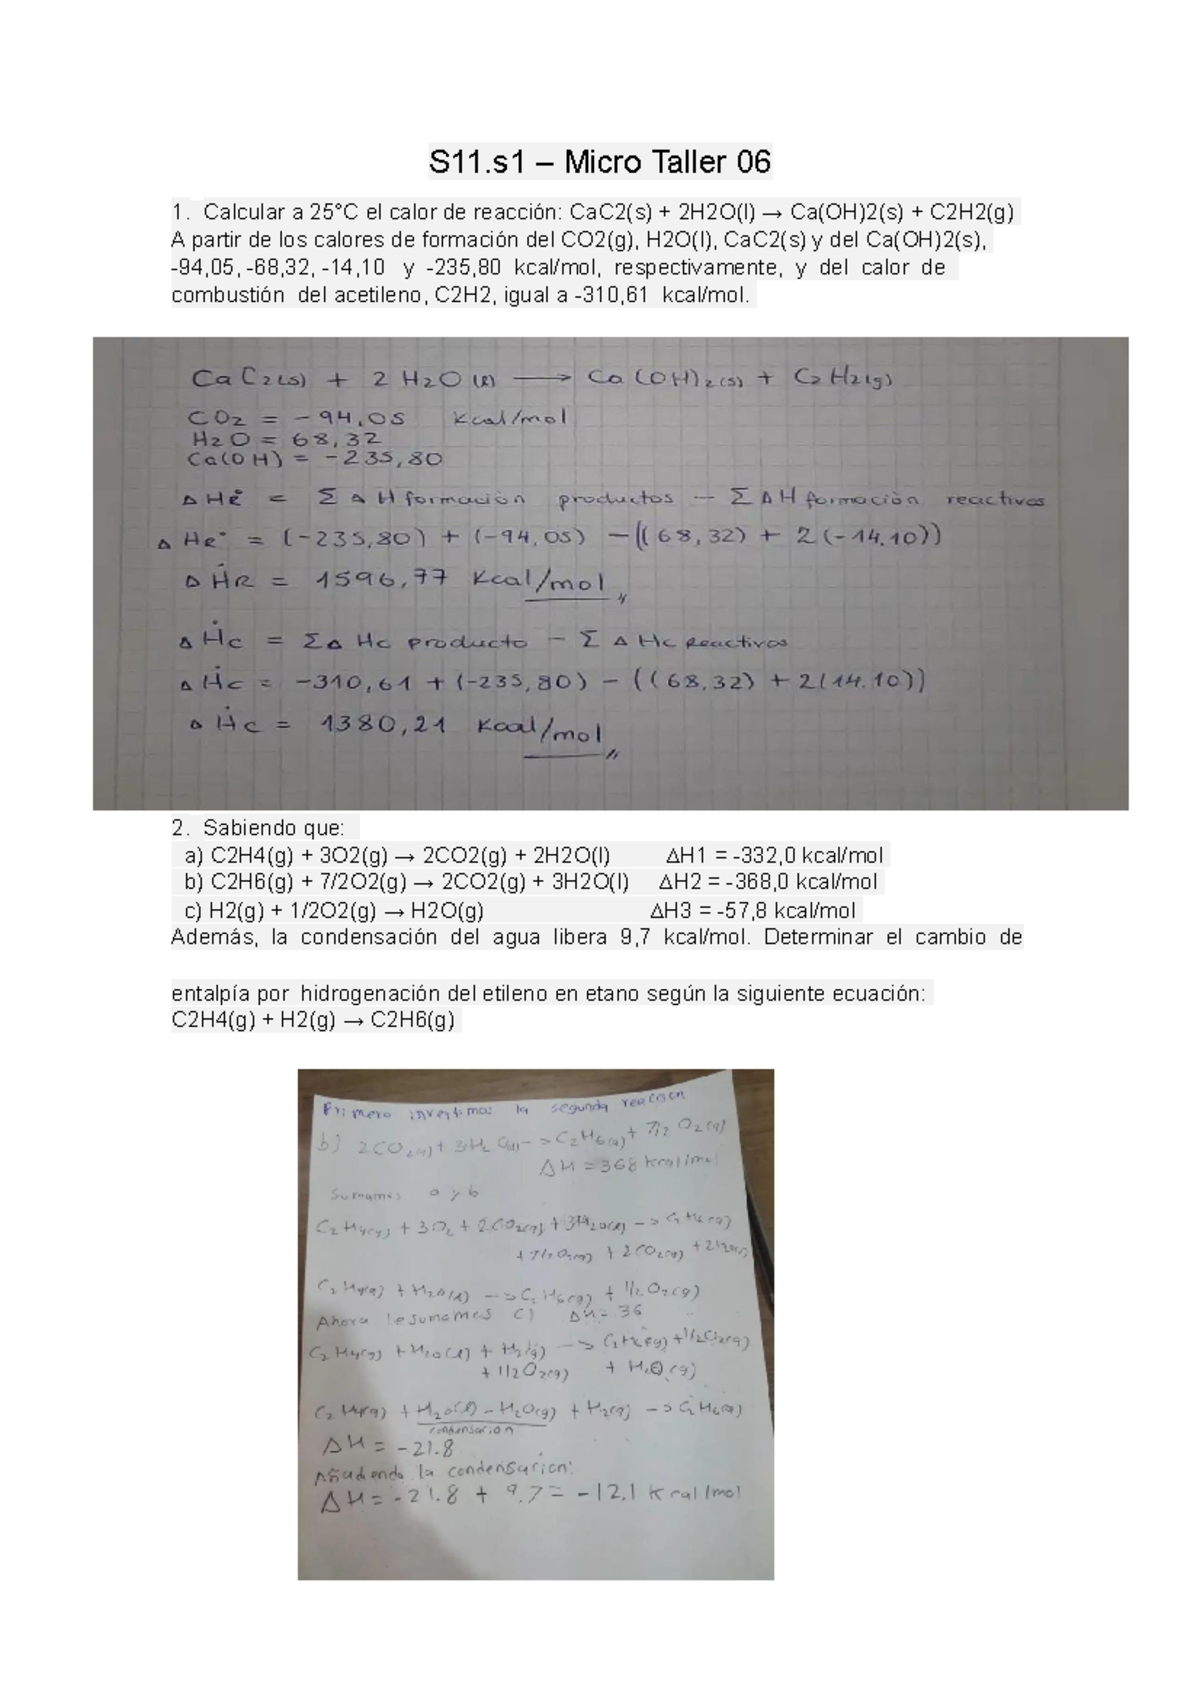 S11.s1 – Micro Taller 06
1. Calcular a 25°C el calor de reacción: CaC2(s) + 2H2O(l) → Ca(OH)2(s) + C2H2(g)
A partir de los calores de formación del CO2(g), H2O(l), CaC2(s) y del Ca(OH)2(s),
-94,05, -68,32, -14,10 y -235,80 kcal/mol, respectivamente, y del calor de
combustión del acetileno, C2H2, igual a -310,61 kcal/mol.
CaC2(s) + 2 H2O (l) ⟶ Ca(OH)2(s) + C2H2(g)
CO2 = -94,05 Kcal/mol
H2O = 68,32
Ca(OH) = -235,80
ΔHR° = Σ Δ H formación productos - Σ ΔH formación reactivos
ΔHR° = (-235,80) + (-94,05) - ((68,32) + 2(-14.10))
ΔHR = 1596,77 Kcal/mol
ΔHc = ΣΔ Hc producto - Σ Δ Hc Reactivos
ΔHc = -310,61 + (-235,80) - ((68,32) + 2(14.10))
ΔHc = 1380,21 Kcal/mol
2. Sabiendo que:
a) C2H4(g) + 3O2(g) → 2CO2(g) + 2H2O(l) ΔH1 = -332,0 kcal/mol
b) C2H6(g) + 7/2O2(g) → 2CO2(g) + 3H2O(l) ΔH2 = -368,0 kcal/mol
c) H2(g) + 1/2O2(g) → H2O(g) ΔH3 = -57,8 kcal/mol
Además, la condensación del agua libera 9,7 kcal/mol. Determinar el cambio de
entalpía por hidrogenación del etileno en etano según la siguiente ecuación:
C2H4(g) + H2(g) → C2H6(g)
Primero invertimos la segunda reaccion
b) 2CO2(g) + 3H2O(l) -> C2H6(g) + 7/2 O2(g)
ΔH = 368 kcal/mol
Sumamos a y b
C2H4(g) + 3O2 + 2CO2(g) + 3H2O(l) -> C2H6(g)
+ 7/2O2(g) + 2CO2(g) + 2H2O(l)
C2H4(g) + H2O(l) -> C2H6(g) + 1/2O2(g)
Ahora le sumamos c) ΔH = 36
C2H4(g) + H2O(l) + H2(g) -> C2H6(g) + 1/2O2(g)
+ 1/2O2(g) + H2O(g)
C2H4(g) + H2O(l) - H2O(g) + H2(g) -> C2H6(g)
condensacion
ΔH = -21.8
Añadiendo la condensacion:
ΔH = -21.8 + 9.7 = -12.1 Kcal/mol